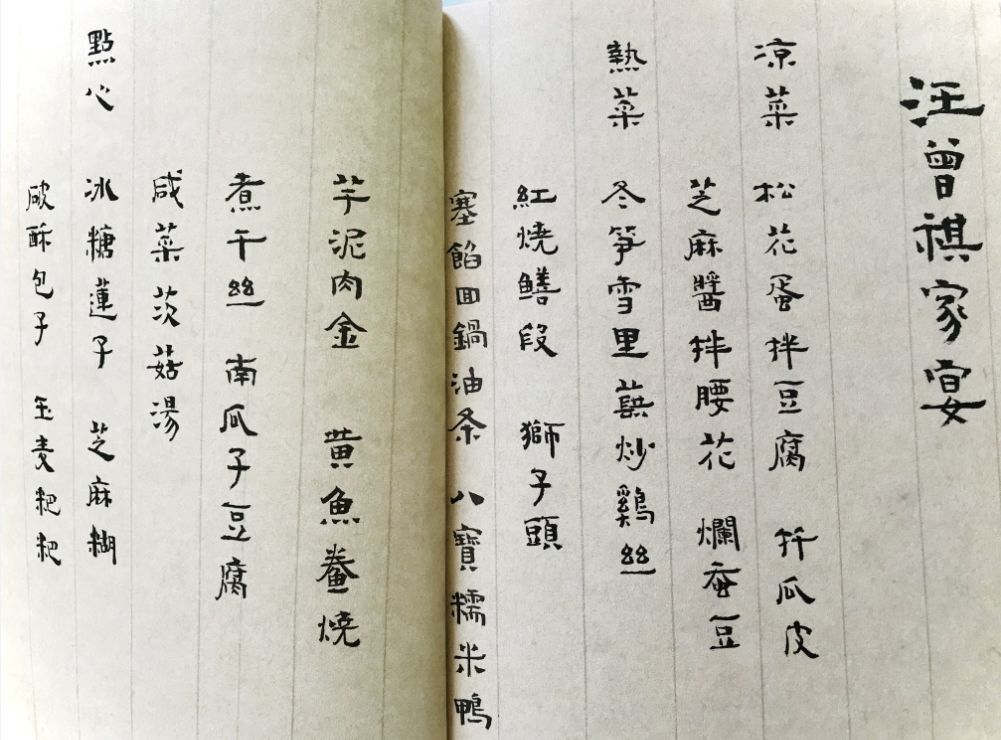 汪曾祺家宴
凉菜 松花蛋拌豆腐 扦瓜皮
芝麻醬拌腰花 爛蚕豆
熱菜 冬笋雪里蕻炒鷄絲
紅燒鱔段 獅子頭
塞餡回鍋油条 八寶糯米鴨
芋泥肉金 黄魚鲞燒
煮干絲 南瓜子豆腐
咸菜茨菇湯
點心 冰糖蓮子 芝麻糊
破酥包子 玉麦粑粑